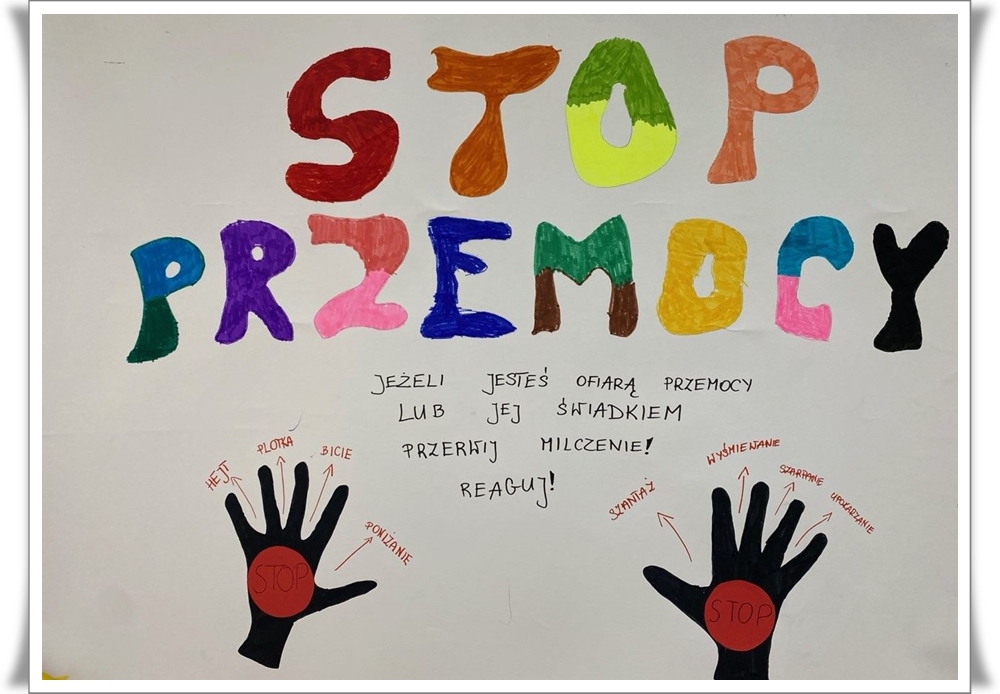 STOP
PRZEMOCY
JEŻELI JESTEŚ OFIARĄ PRZEMOCY
LUB JEJ ŚWIADKIEM
PRZERWIJ MILCZENIE!
REAGUJ!
HEJT
PLOTKA
BICIE
PONIŻANIE
STOP
SZANTAŻ
WYŚMIEWANIE
SZARPANIE
UPOKARZANIE
STOP